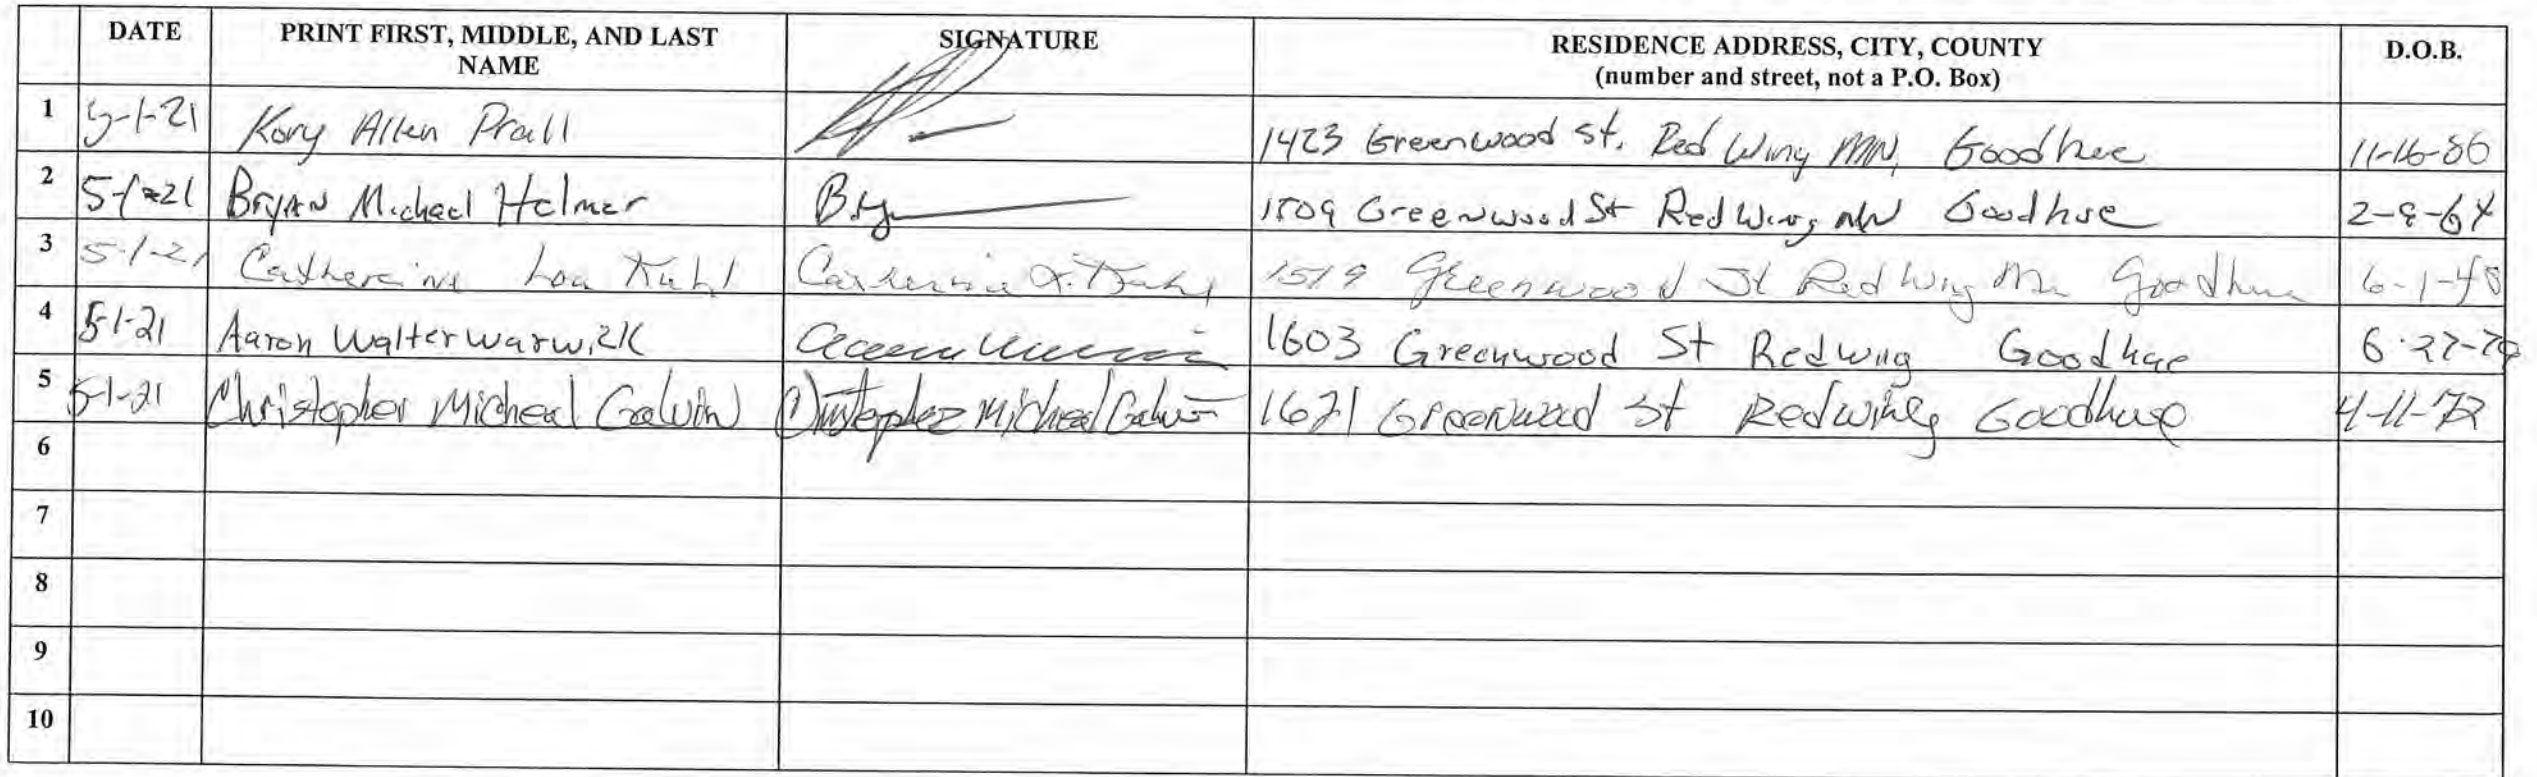 DATE PRINT FIRST, MIDDLE, AND LAST NAME SIGNATURE RESIDENCE ADDRESS, CITY, COUNTY (number and street, not a P.O. Box) D.O.B.
1 5-1-21 Kory Allen Prall 1423 Greenwood St. Red Wing MN, Goodhue 11-16-86
2 5-1-21 Bryan Michael Helmer 1509 Greenwood St Red Wing MN Goodhue 2-8-64
3 5-1-21 Catherine Lou Kuhl 1519 Greenwood St Red Wing Mn Goodhue 6-1-48
4 5-1-21 Aaron Walter Warwick 1603 Greenwood St Redwing Goodhue 6-27-79
5 5-1-21 Christopher Micheal Galvin Christopher Micheal Galvin 1621 Greenwood St Redwing Goodhue 4-11-72
6
7
8
9
10